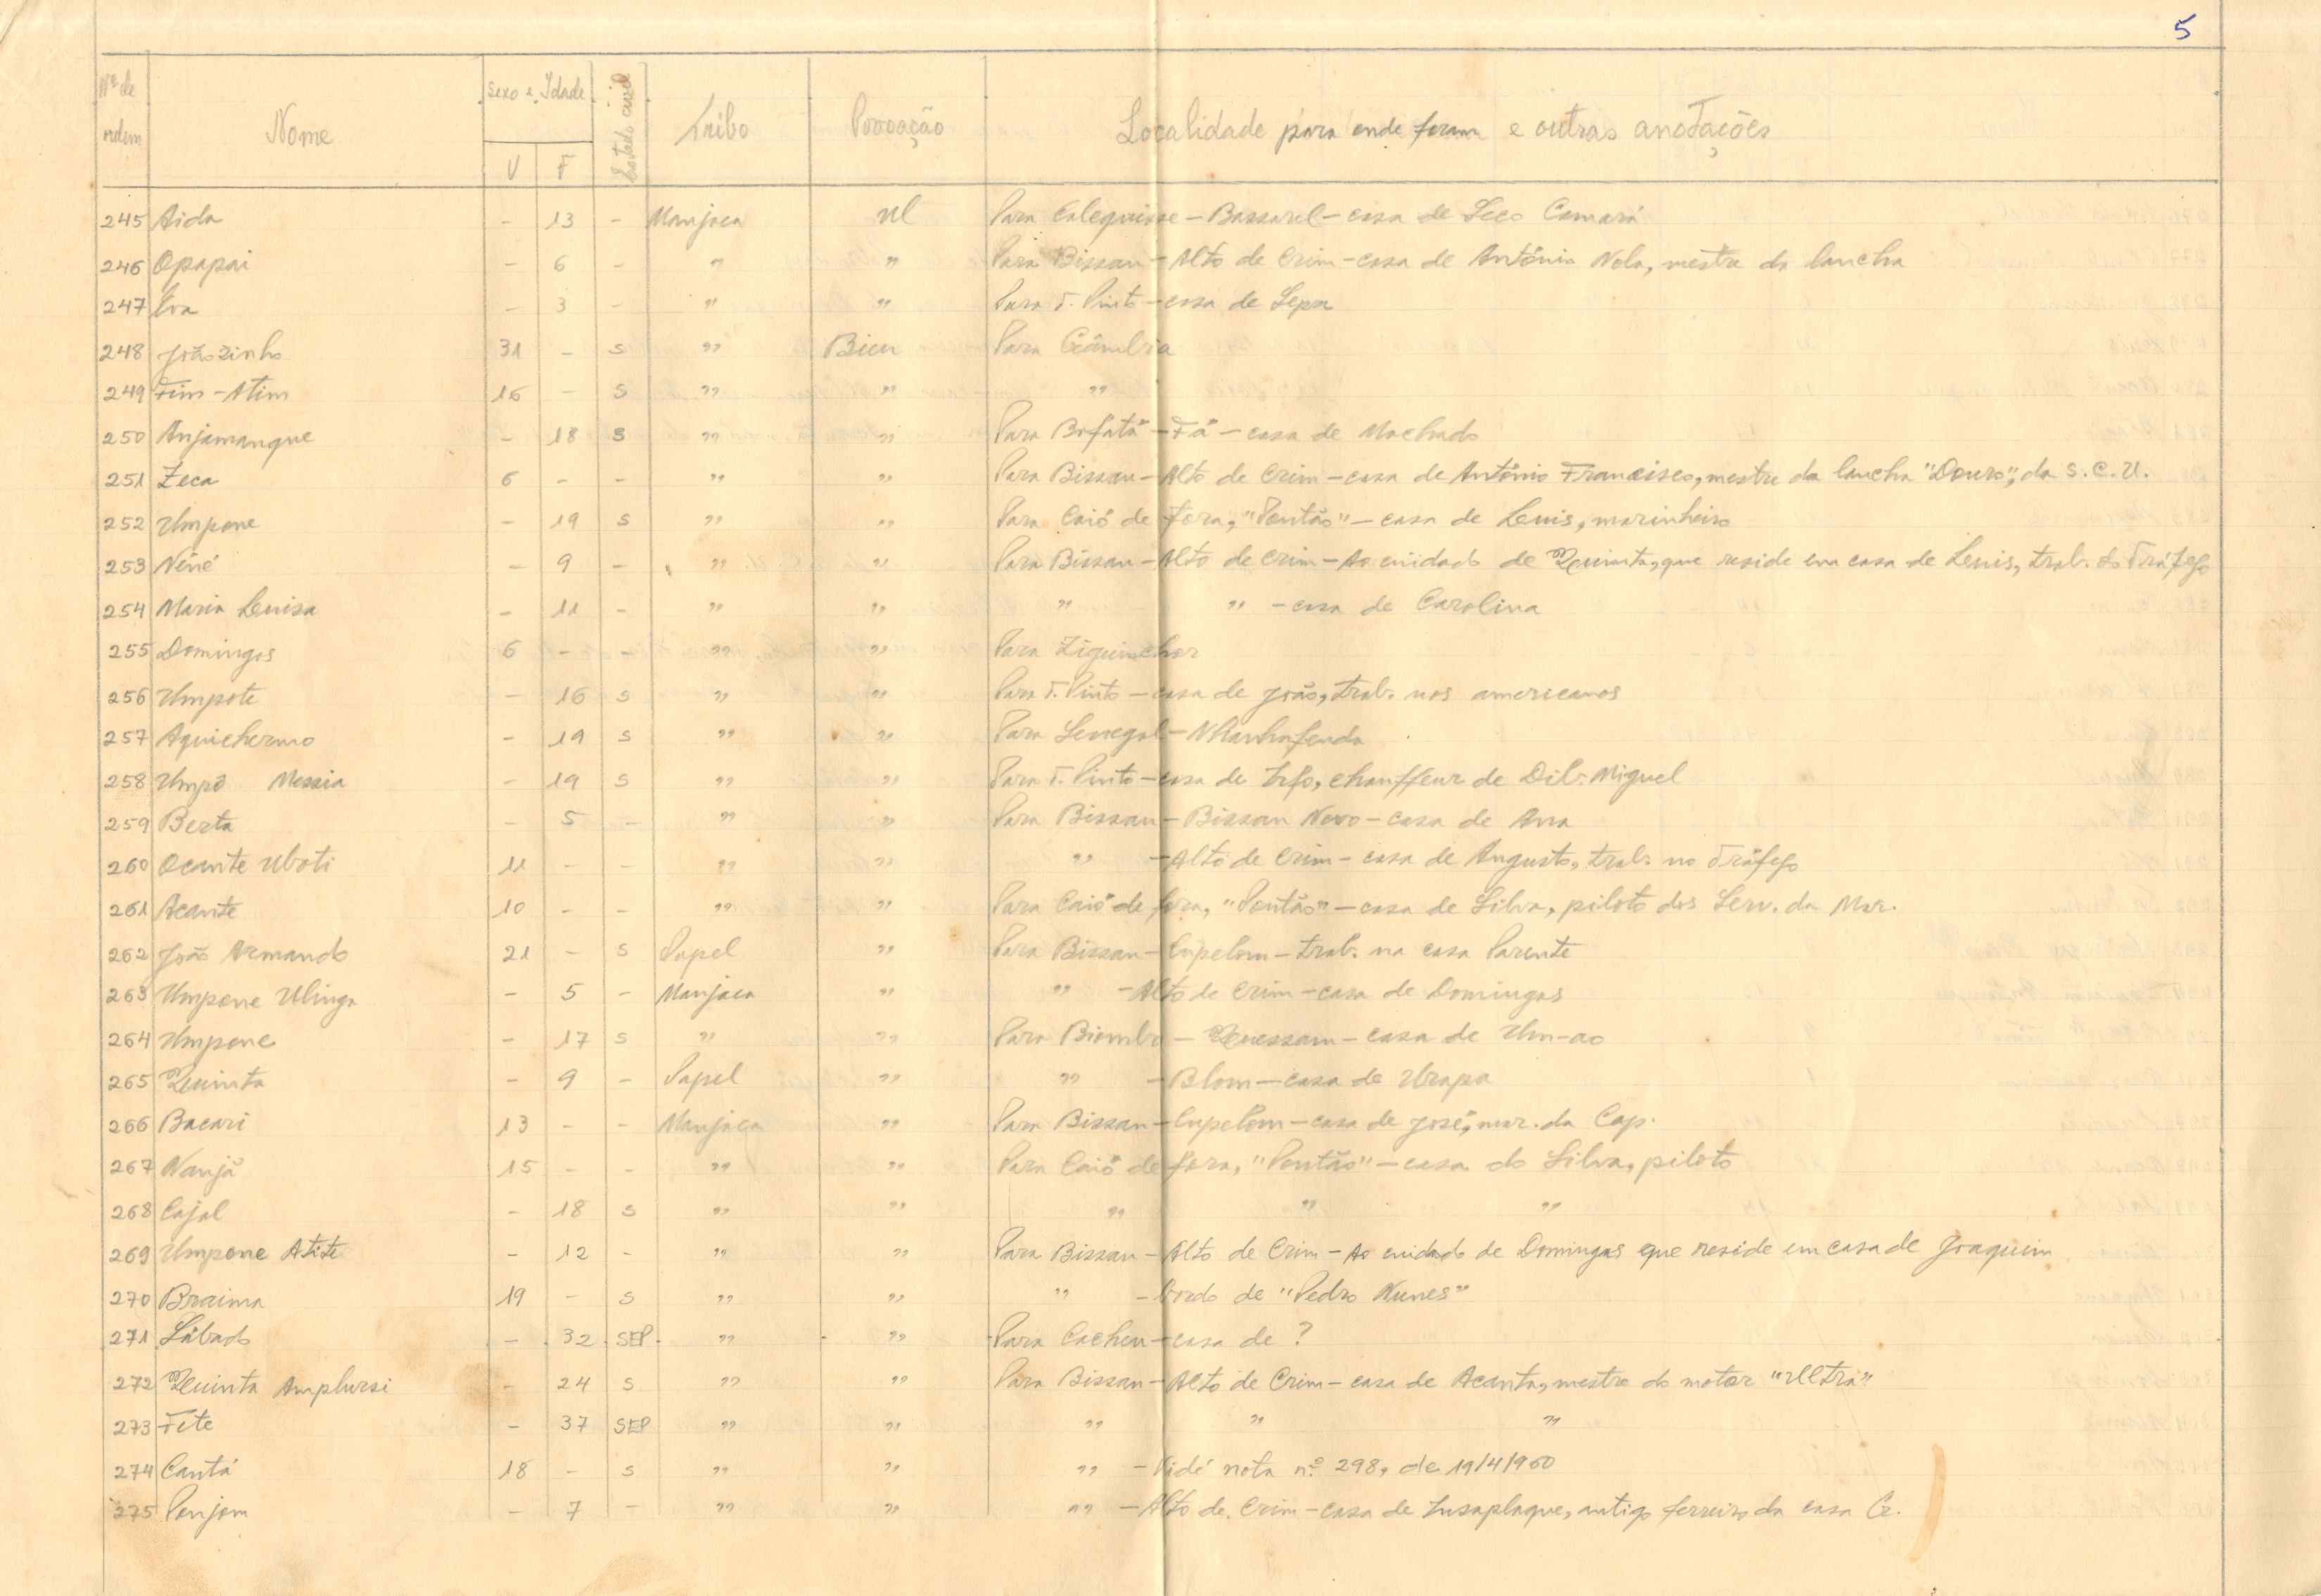 5
Nº de ordem Nome Sexo e Idade V F Estado civil Tribo Povoação Localidade para onde foram e outras anotações
245 Aida - 13 - Manjaca Ul Para Calequisse - Bassarel - casa de Seco Camará
246 Opapai - 6 - " " Para Bissau - Alto de Crim - casa de António Nola, mestre da lancha
247 Eva - 3 - " " Para T. Pinto - casa de Sepa
248 Joãozinho 31 - S " Bieu Para Gâmbia
249 Fim-Atim 16 - S " " "
250 Anjamanque - 18 S " " Para Bafatá - Fá - casa de Machado
251 Zeca 6 - - " " Para Bissau - Alto de Crim - casa de António Francisco, mestre da lancha "Douro", da S.C.U.
252 Umpone - 19 S " " Para Caió de fora, "Pontão" - casa de Luis, marinheiro
253 Nêné - 9 - " " Para Bissau - Alto de Crim - Ao cuidado de Quinta, que reside em casa de Luis, trab. do Tráfego
254 Maria Luisa - 11 - " " " " - casa de Carolina
255 Domingos 6 - - " " Para Ziguinchor
256 Umpote - 16 S " " Para T. Pinto - casa de João, trab. nos americanos
257 Aquichermo - 19 S " " Para Senegal - Nhanhafenda
258 Umpô Messia - 19 S " " Para T. Pinto - casa de chauffeur de Dib. Miguel
259 Berta - 5 - " " Para Bissau - Bissau Novo - casa de Ana
260 Ocante Uboti 11 - - " " " - Alto de Crim - casa de Augusto, trab. no Tráfego
261 Acante 10 - - " " Para Caió de fora, "Pontão" - casa de Silva, piloto dos Serv. da Mar.
262 João Armando 21 - S Papel " Para Bissau - Cupelom - trab. na casa Parente
263 Umpone Ulinga - 5 - Manjaca " " - Alto de Crim - casa de Domingas
264 Umpone - 17 S " " Para Biombo - Quessam - casa de Um-ao
265 Quinta - 9 - Papel " " - Blom - casa de Urapa
266 Bacari 13 - - Manjaca " Para Bissau - Cupelom - casa de José, mar. da Cap.
267 Nanjã 15 - - " " Para Caió de fora, "Pontão" - casa do Silva, piloto
268 Cajal - 18 S " " " " "
269 Umpone Atite - 12 - " " Para Bissau - Alto de Crim - Ao cuidado de Domingas que reside em casa de Joaquim
270 Braima 19 - S " " " - bordo de "Pedro Nunes"
271 Sábado - 32 SEP. " " Para Cacheu - casa de ?
272 Quinta Amplursi - 24 S " " Para Bissau - Alto de Crim - casa de Acanta, mestre do motor
273 Fete - 37 SEP " " " " "
274 Cantá 18 - S " " " - Vidé nota nº 298, de 19/4/960
275 Penjam - 7 - " " " - Alto de Crim - casa de Insaplaque, antigo ferreiro da casa G.